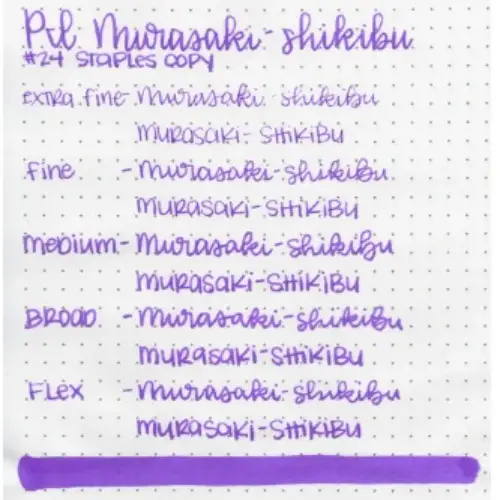 Pil Murasaki-shikibu
#24 STAPLES COPY
EXTRA FINE Murasaki-shikibu
MURASAKI-SHIKIBU
FINE -Murasaki-shikibu
MURASAKI-SHIKIBU
MEDIUM-Murasaki-shikibu
MURASAKI-SHIKIBU
BROAD -Murasaki-shikibu
MURASAKI-SHIKIBU
FLEX -Murasaki-shikibu
MURASAKI-SHIKIBU